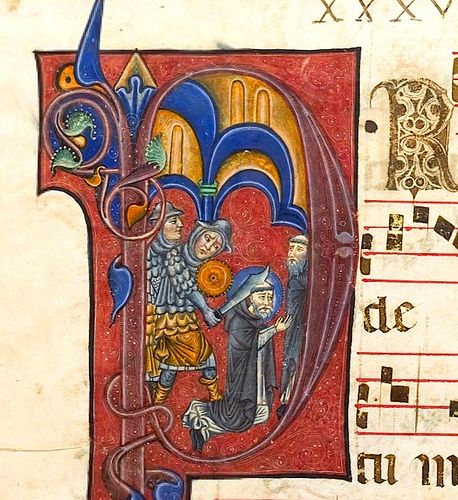 XXXV
P R
de
tu m